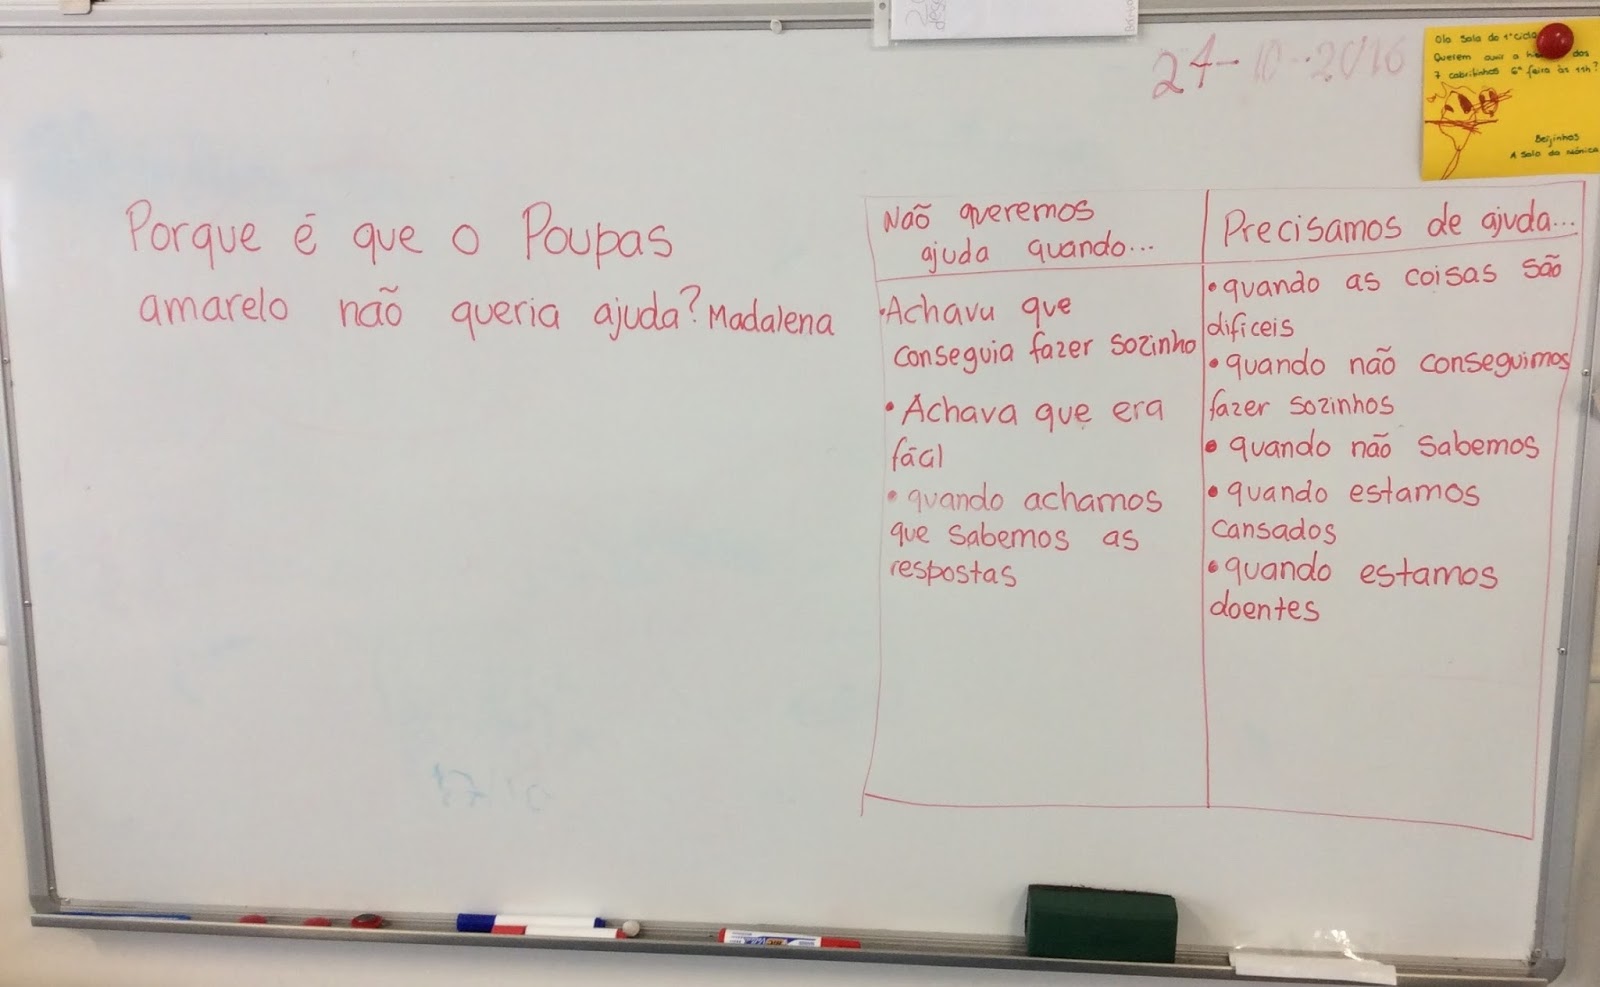 24-10-2016
Olá Sala do 1º ciclo
Querem ouvir a dos
7 cabritinhos 6ª feira às 11h?
Beijinhos
A Sala da Mónica
Porque é que o Poupas
amarelo não queria ajuda? Madalena
Não queremos
ajuda quando...
•Achava que
conseguia fazer sozinho
• Achava que era
fácil
• quando achamos
que sabemos as
respostas
Precisamos de ajuda...
• quando as coisas são
dificeis
• quando não conseguimos
fazer sozinhos
• quando não sabemos
• quando estamos
cansados
• quando estamos
doentes